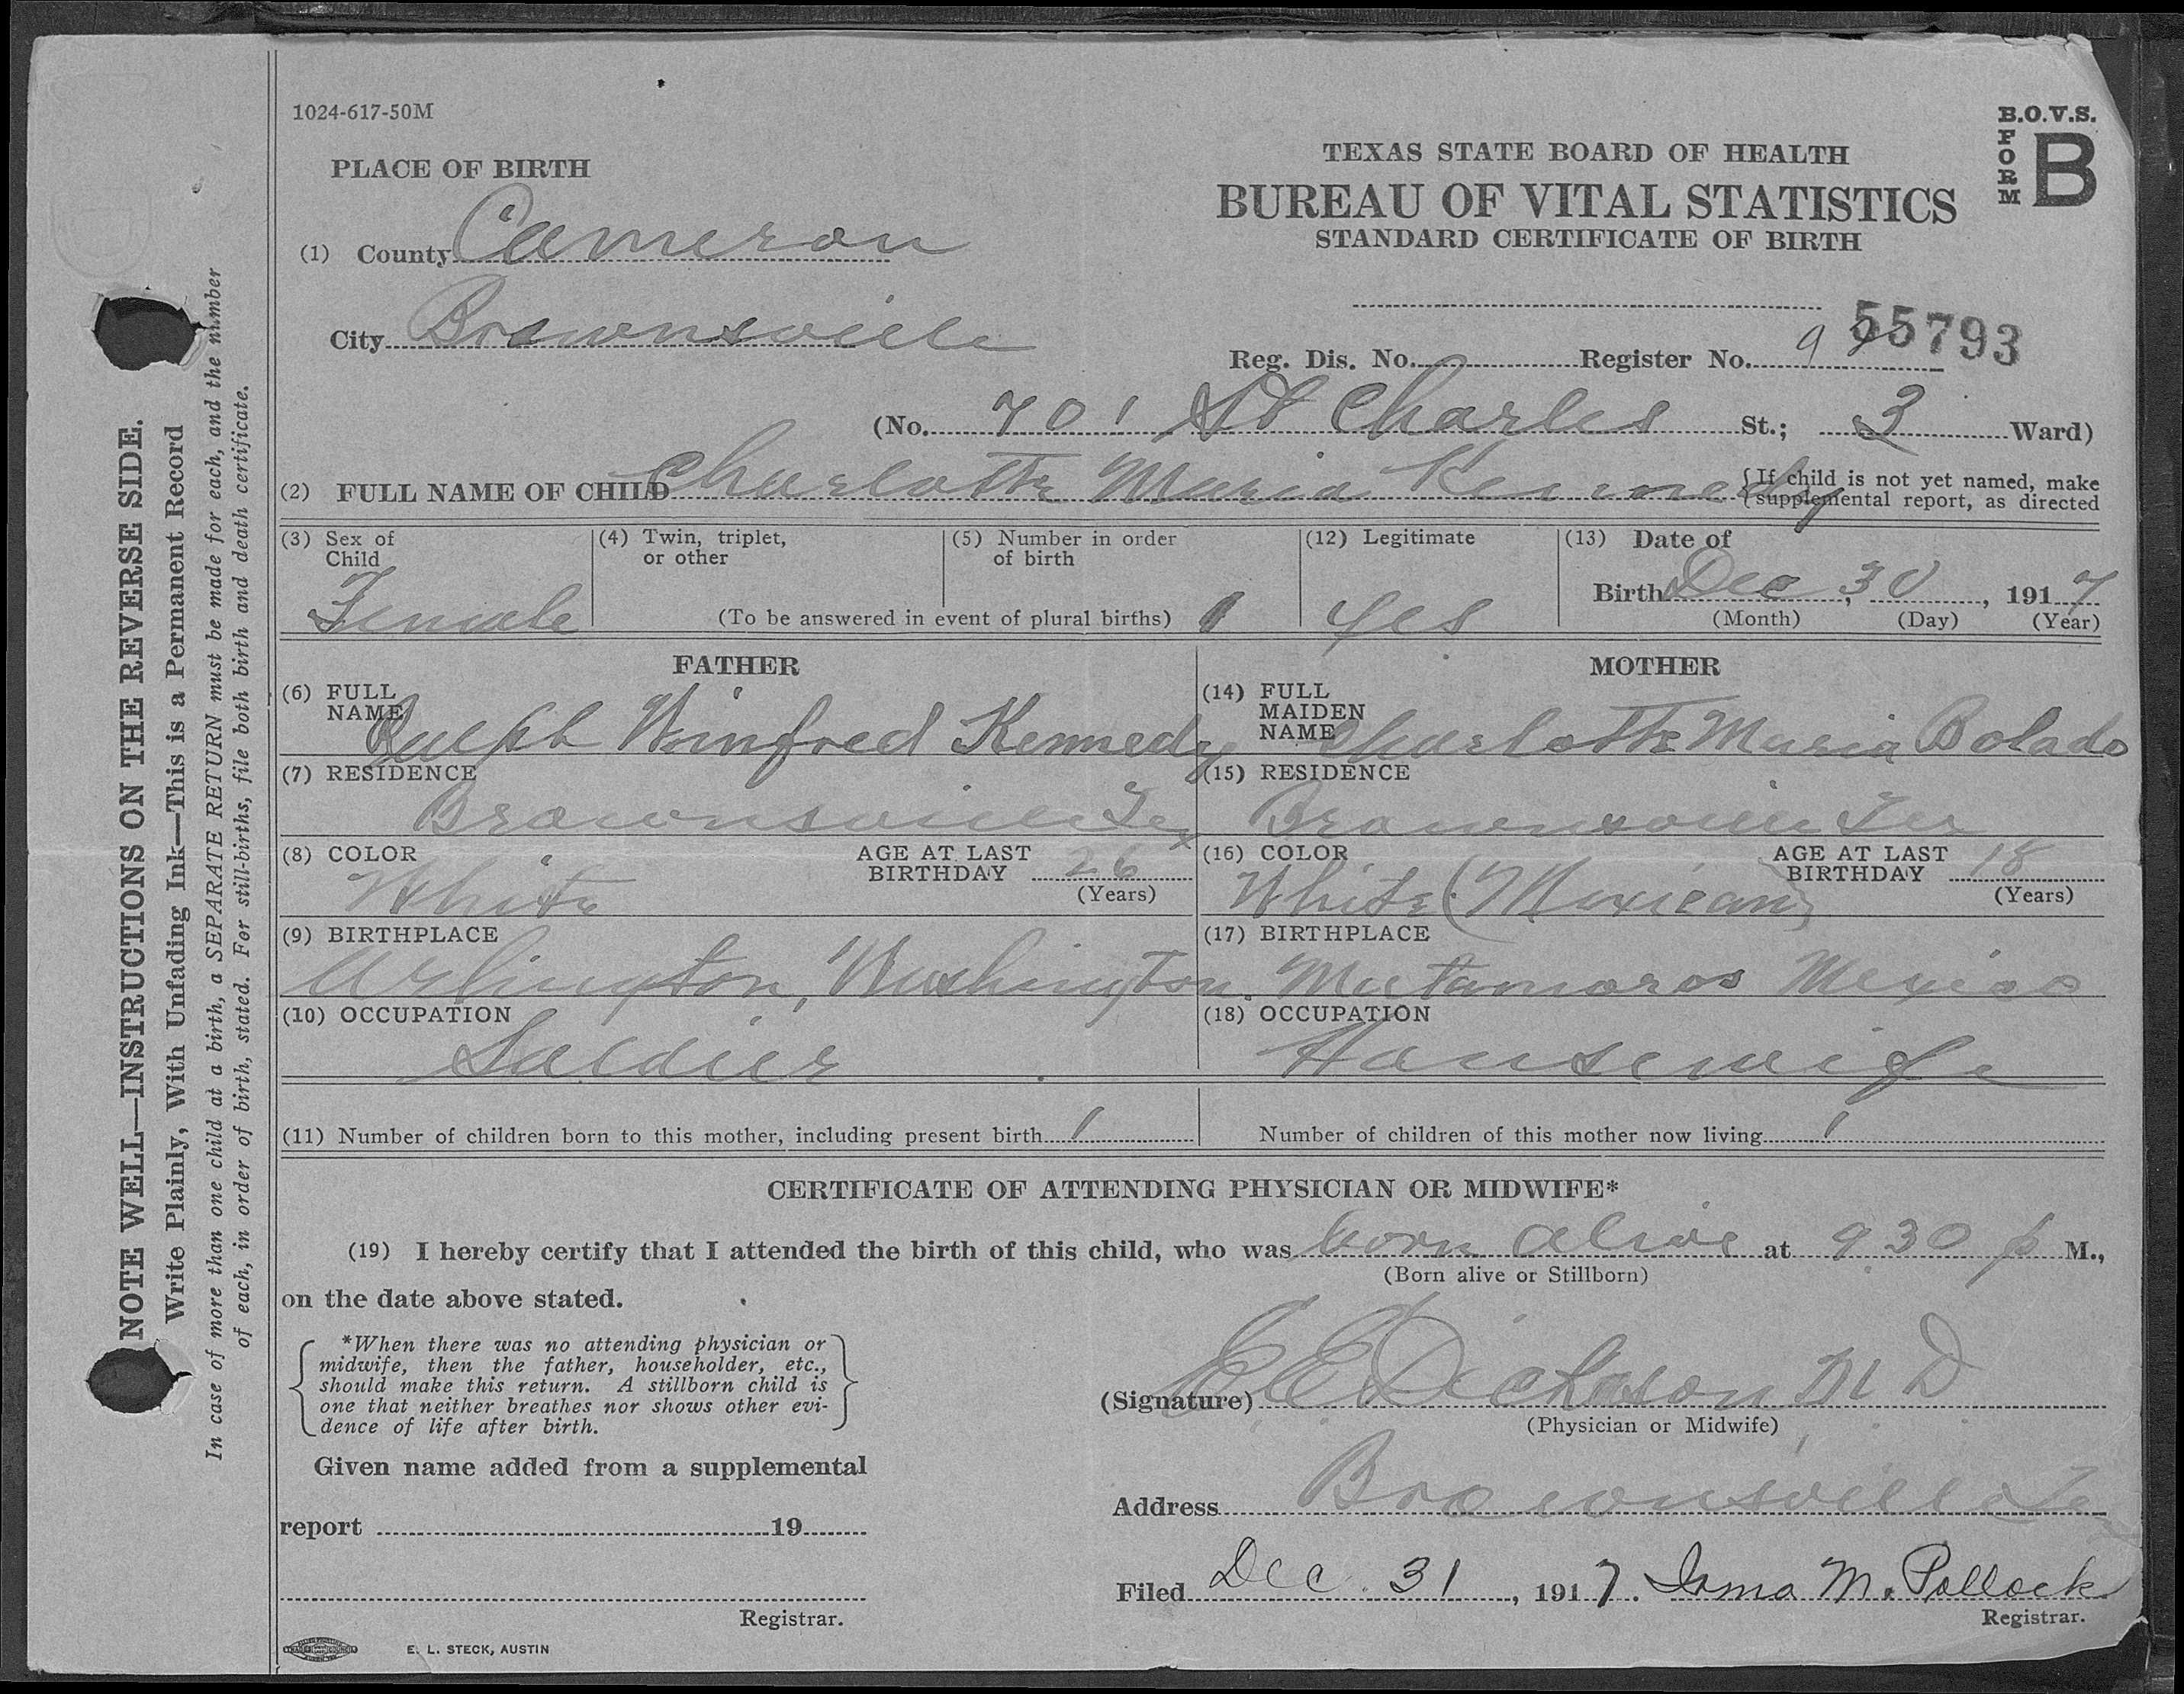 1024-617-50M
B.O.V.S.
FORM B
PLACE OF BIRTH
TEXAS STATE BOARD OF HEALTH
BUREAU OF VITAL STATISTICS
STANDARD CERTIFICATE OF BIRTH
(1) County Cameron
City Brownsville
55793
Reg. Dis. No. Register No. 9
(No. 701 St Charles St.; 3 Ward)
(2) FULL NAME OF CHILD Charlotte Maria Kennedy {If child is not yet named, make
supplemental report, as directed
(3) Sex of Child Female
(4) Twin, triplet, or other
(5) Number in order of birth
(To be answered in event of plural births) 1
(12) Legitimate yes
(13) Date of
Birth Dec, 30, 1917
(Month) (Day) (Year)
FATHER
(6) FULL NAME Ralph Winfred Kennedy
(7) RESIDENCE
Brownsville Tex
(8) COLOR White
AGE AT LAST BIRTHDAY 26
(Years)
(9) BIRTHPLACE
Arlington, Washington.
(10) OCCUPATION
Soldier
MOTHER
(14) FULL MAIDEN NAME Charlotte Maria Bolado
(15) RESIDENCE
Brownsville Tex
(16) COLOR White (Mexican)
AGE AT LAST BIRTHDAY 18
(Years)
(17) BIRTHPLACE
Matamoros Mexico
(18) OCCUPATION
Housewife
(11) Number of children born to this mother, including present birth 1
Number of children of this mother now living 1
CERTIFICATE OF ATTENDING PHYSICIAN OR MIDWIFE*
(19) I hereby certify that I attended the birth of this child, who was born alive at 9.30 p M.,
(Born alive or Stillborn)
on the date above stated.
*When there was no attending physician or
midwife, then the father, householder, etc.,
should make this return. A stillborn child is
one that neither breathes nor shows other evi-
dence of life after birth.
(Signature) E E Dickason M D
(Physician or Midwife)
Given name added from a supplemental
report 19
Registrar.
Address Brownsville Tex
Filed Dec. 31, 1917. Irma M. Pollock
Registrar.
E. L. STECK, AUSTIN
NOTE WELL—INSTRUCTIONS ON THE REVERSE SIDE.
Write Plainly, With Unfading Ink—This is a Permanent Record
In case of more than one child at a birth, a SEPARATE RETURN must be made for each, and the number
of each, in order of birth, stated. For still-births, file both birth and death certificate.